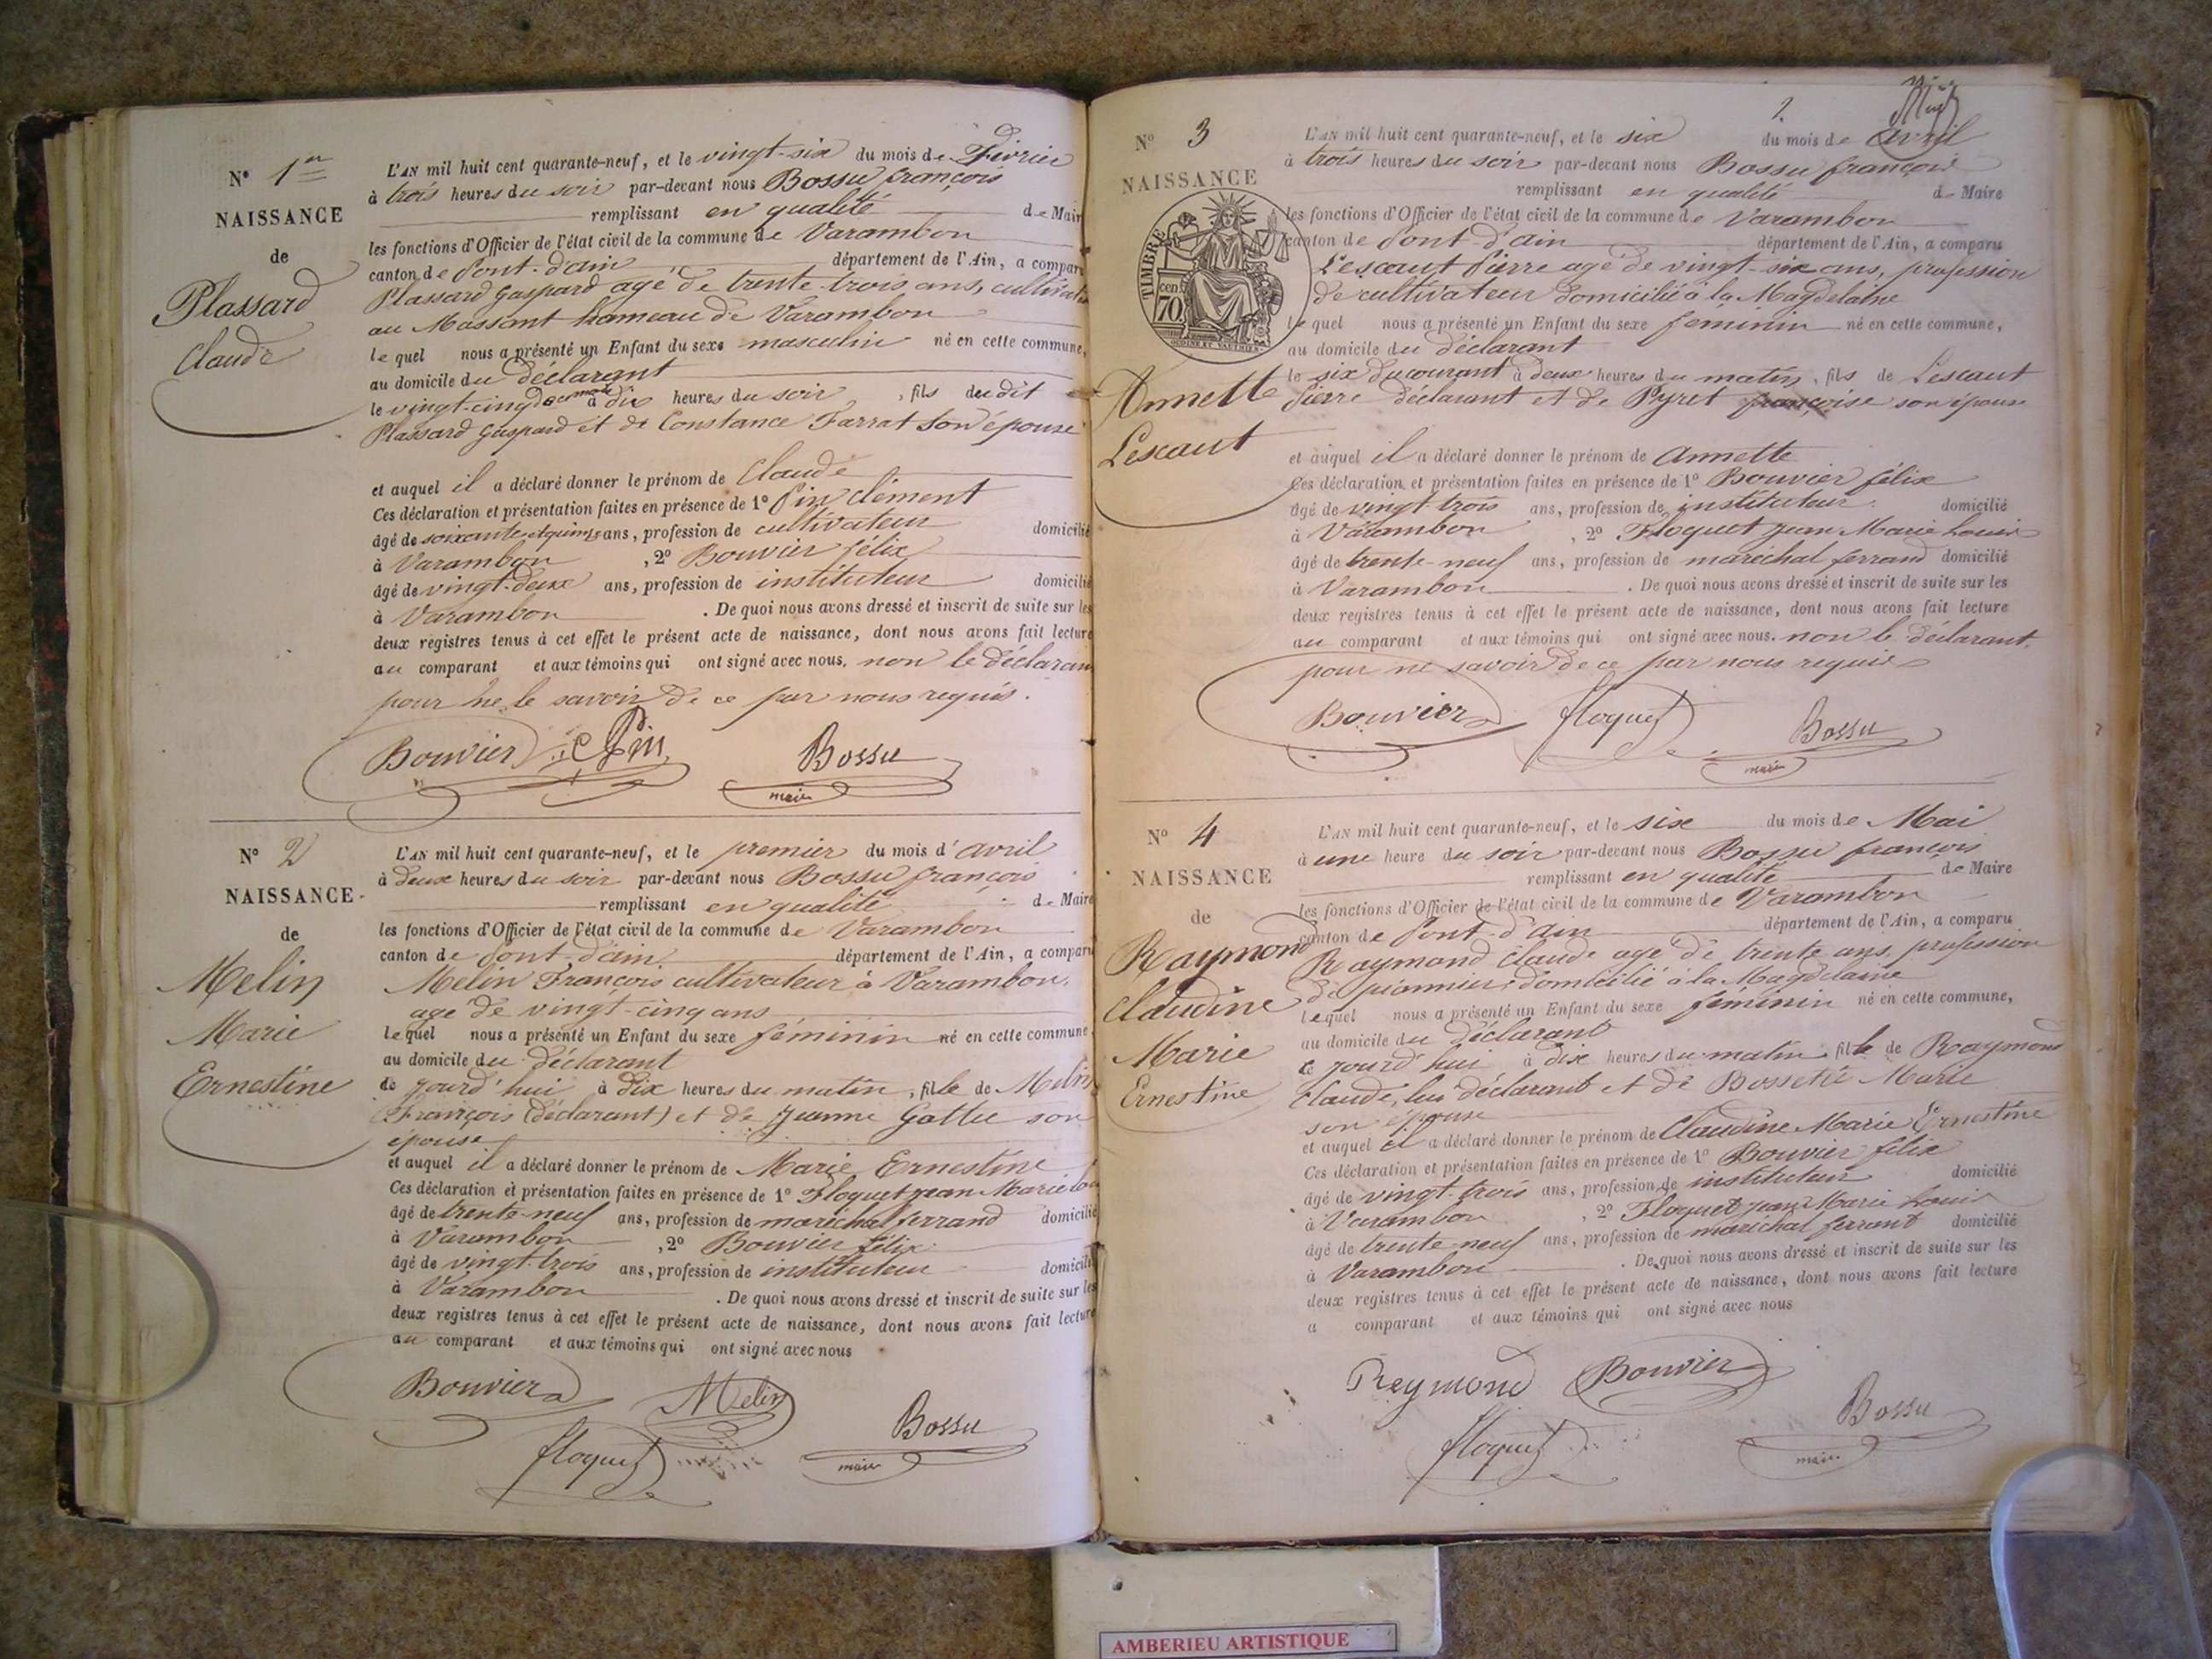 N° 1er
NAISSANCE
de
Plassard
Claude
L'AN mil huit cent quarante-neuf, et le vingt-six du mois de Février
à trois heures du soir par-devant nous Bossu françois
remplissant en qualité de Mair
les fonctions d'Officier de l'état civil de la commune de Varambon
canton de Pont-d'ain département de l'Ain, a compar
Plassard Gaspard agé de trente-trois ans, cultivate
au Massant hameau de Varambon
lequel nous a présenté un Enfant du sexe masculin né en cette commune,
au domicile du déclarant
le vingt-cinq du à dix heures du soir, fils du dit
Plassard Gaspard et de Constance Farrat son épouse
et auquel il a déclaré donner le prénom de Claude
Ces déclaration et présentation faites en présence de 1° Pin Clément
âgé de soixante et quinze ans, profession de cultivateur domicilié
à Varambon, 2° Bouvier félix
âgé de vingt-deux ans, profession de instituteur domicilié
à Varambon. De quoi nous avons dressé et inscrit de suite sur les
deux registres tenus à cet effet le présent acte de naissance, dont nous avons fait lecture
au comparant et aux témoins qui ont signé avec nous, non le déclaran
pour ne le savoir de ce par nous requis.
Bouvier C Pin Bossu
maire
N° 2
NAISSANCE
de
Melin
Marie
Ernestine
L'AN mil huit cent quarante-neuf, et le premier du mois d'avril
à deux heures du soir par-devant nous Bossu françois
remplissant en qualité de Maire
les fonctions d'Officier de l'état civil de la commune de Varambon
canton de Pont-d'ain département de l'Ain, a comparu
Melin François cultivateur à Varambon,
age de vingt-cinq ans
lequel nous a présenté un Enfant du sexe féminin né en cette commune
au domicile du déclarant
ce jourd'hui à dix heures du matin, fille de Melin
François (déclarant) et de Jeanne Gallie son
épouse
et auquel il a déclaré donner le prénom de Marie Ernestine
Ces déclaration et présentation faites en présence de 1° Floquet jean Marie lou
âgé de trente-neuf ans, profession de maréchal ferrand domicilié
à Varambon, 2° Bouvier félix
âgé de vingt-trois ans, profession de instituteur domicilié
à Varambon. De quoi nous avons dressé et inscrit de suite sur les
deux registres tenus à cet effet le présent acte de naissance, dont nous avons fait lecture
au comparant et aux témoins qui ont signé avec nous
Bouvier Melin
floquet Bossu
maire
2
N° 3
NAISSANCE
TIMBRE
cen 70
Annette
Lescaut
L'AN mil huit cent quarante-neuf, et le six du mois de avril
à trois heures du soir par-devant nous Bossu françois
remplissant en qualité de Maire
les fonctions d'Officier de l'état civil de la commune de Varambon
canton de Pont-d'ain département de l'Ain, a comparu
Lescaut Pierre agé de vingt-six ans, profession
de cultivateur domicilié à la Magdelaine
lequel nous a présenté un Enfant du sexe feminin né en cette commune,
au domicile du déclarant
le six du courant à deux heures du matin, fils de Lescaut
Pierre déclarant et de Pyret françoise son épouse
et auquel il a déclaré donner le prénom de Annette
Ces déclaration et présentation faites en présence de 1° Bouvier félix
âgé de vingt-trois ans, profession de instituteur domicilié
à Varambon, 2° Floquet Jean Marie Louis
âgé de trente-neuf ans, profession de maréchal ferrand domicilié
à Varambon. De quoi nous avons dressé et inscrit de suite sur les
deux registres tenus à cet effet le présent acte de naissance, dont nous avons fait lecture
au comparant et aux témoins qui ont signé avec nous. non le déclarant,
pour ne savoir de ce par nous requis
Bouvier floquet Bossu
maire
N° 4
NAISSANCE
de
Raymond
Claudine
Marie
Ernestine
L'AN mil huit cent quarante-neuf, et le six du mois de Mai
à une heure du soir par-devant nous Bossu françois
remplissant en qualité de Maire
les fonctions d'Officier de l'état civil de la commune de Varambon
canton de Pont-d'ain département de l'Ain, a comparu
Raymond Claude age de trente ans, profession
de pionnier, domicilié à la Magdelaine
lequel nous a présenté un Enfant du sexe féminin né en cette commune,
au domicile du déclarant
ce jourd'hui à dix heures du matin, fille de Raymond
Claude, lui déclarant et de Marie
son épouse
et auquel il a déclaré donner le prénom de Claudine Marie Ernestine
Ces déclaration et présentation faites en présence de 1° Bouvier félix
âgé de vingt-trois ans, profession de instituteur domicilié
à Varambon, 2° Floquet jean Marie Louis
âgé de trente neuf ans, profession de maréchal ferrant domicilié
à Varambon. De quoi nous avons dressé et inscrit de suite sur les
deux registres tenus à cet effet le présent acte de naissance, dont nous avons fait lecture
a comparant et aux témoins qui ont signé avec nous
Reymond Bouvier
floquet Bossu
maire
AMBERIEU ARTISTIQUE